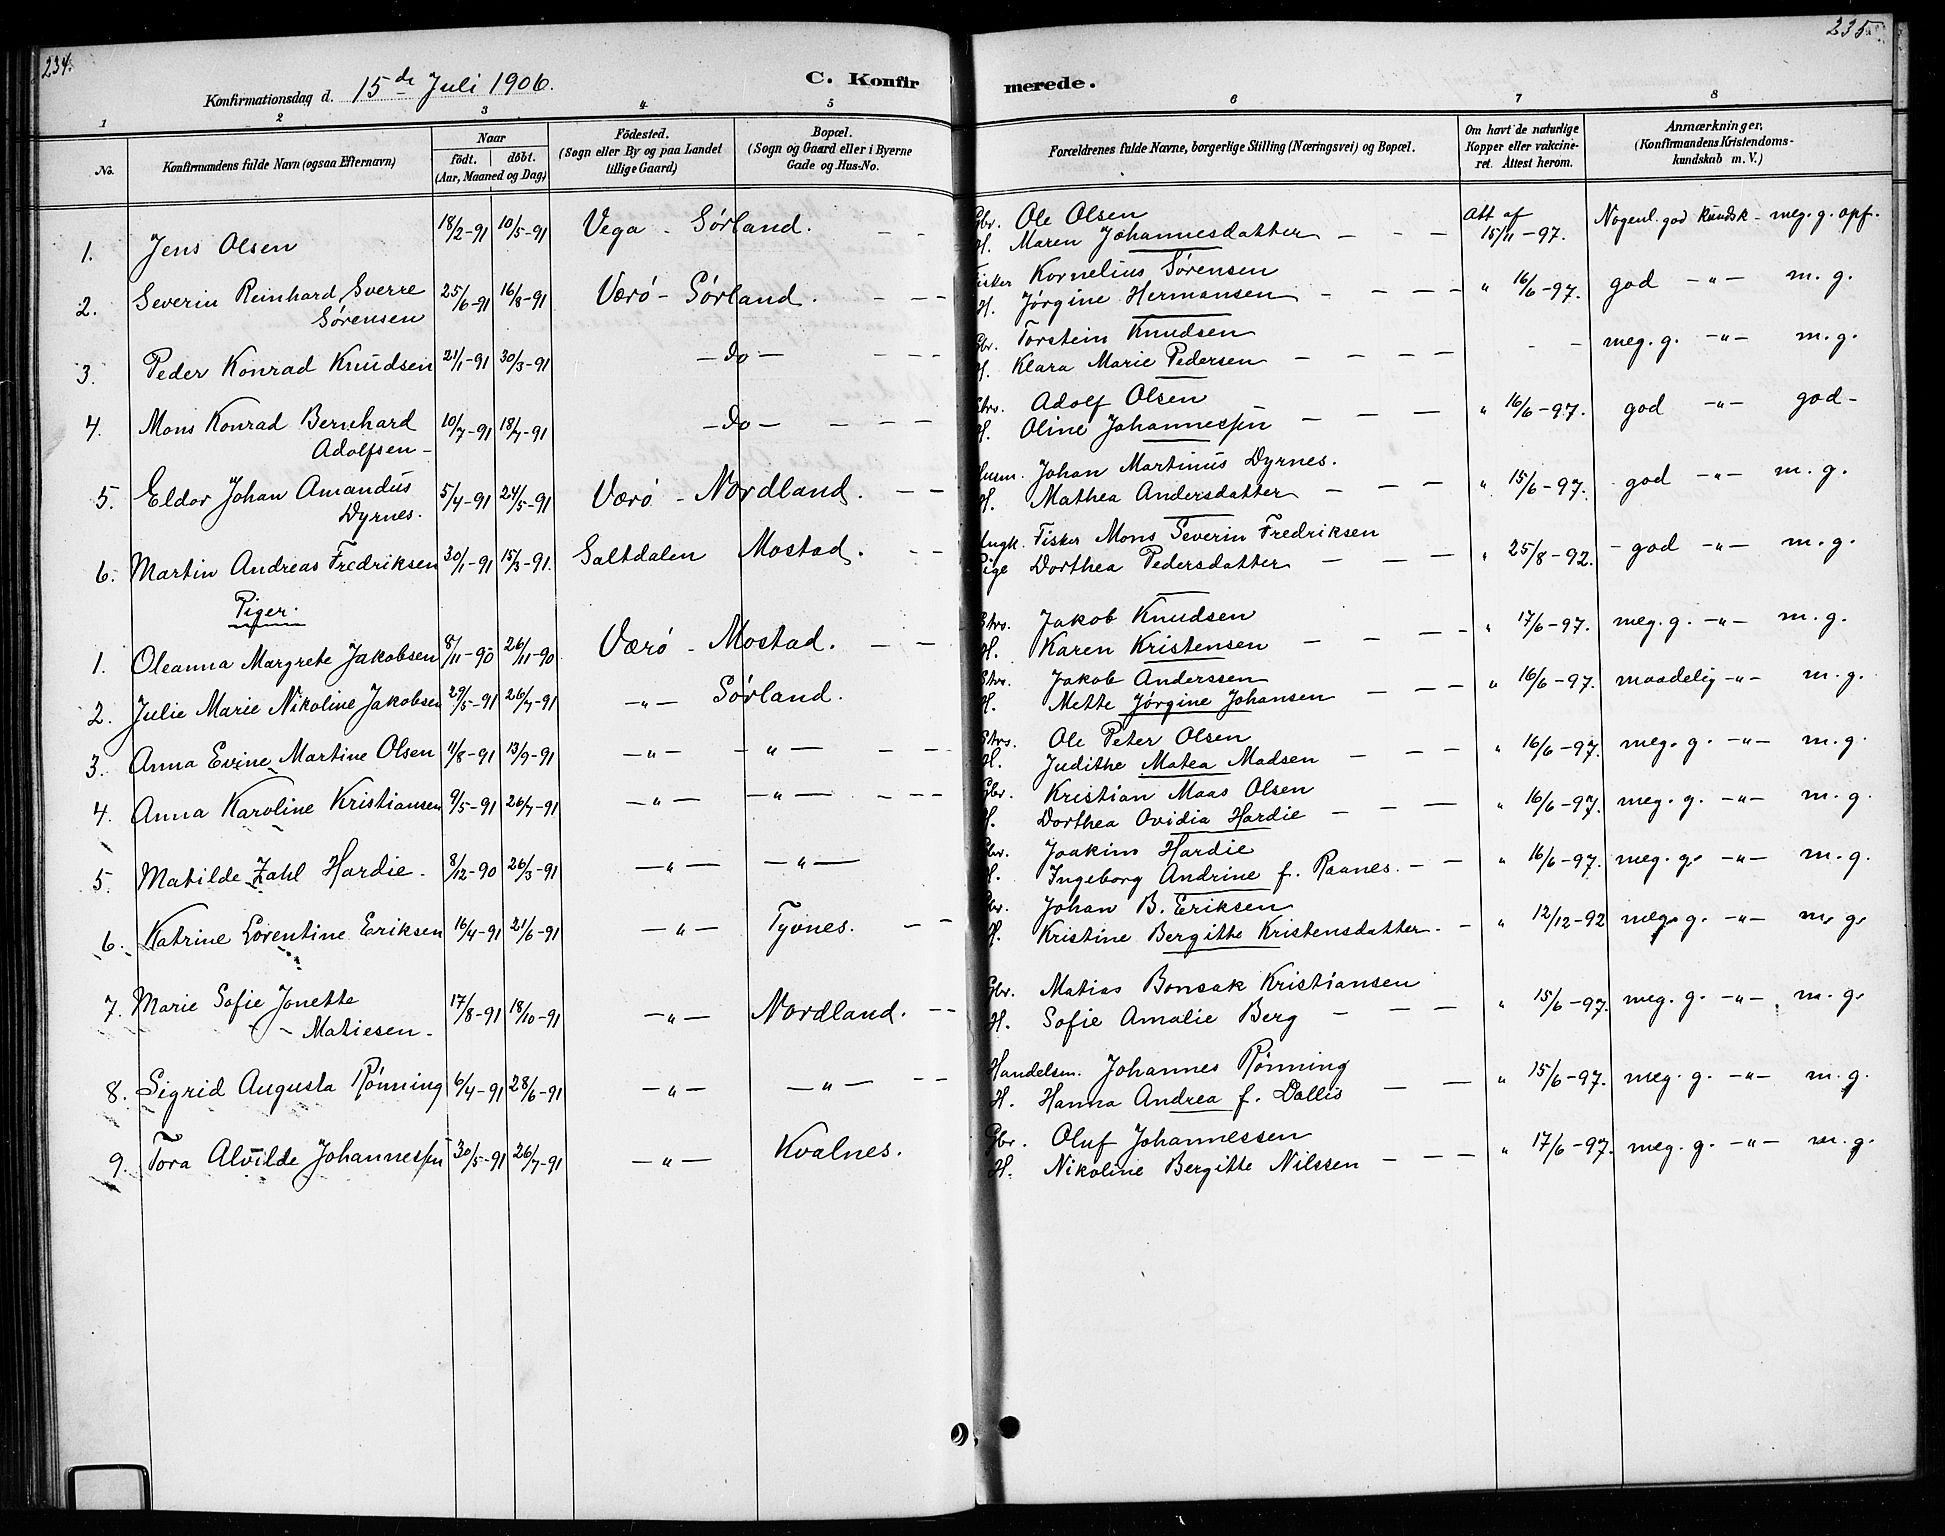 234.
235
Konfirmationsdag d. 15de Juli 1906.
C. Konfir merede.
1 2 3 4 5 6 7 8
No.
Konfirmandens fulde Navn (ogsaa Efternavn)
Naar
födt. döbt.
(Aar, Maaned og Dag)
Födested.
(Sogn eller By og paa Landet
tillige Gaard)
Bopæl.
(Sogn og Gaard eller i Byerne
Gade og Hus-No.
Forældrenes fulde Navne, borgerlige Stilling (Næringsvei) og Bopæl.
Om havt de naturlige
Kopper eller vakcine-
ret. Attest herom.
Anmærkninger.
(Konfirmandens Kristendoms-
kundskab m. V.)
1. Jens Olsen 18/2-91 10/5-91 Vega - Sørland. Gbr. Ole Olsen Att af
H. Maren Johannesdatter 15/11-97. Nogenl. god kundsk - meg. g. opf.
2. Severin Reinhard Sverre 25/6-91 16/8-91 Værö - Sørland. Fisker Kornelius Sørensen
Sørensen H. Jørgine Hermansen " 16/6-97. god -"- m. g.
3. Peder Konrad Knudsen 21/1-91 30/3-91 -Do- Gbr. Torstein Knudsen
H. Klara Marie Pedersen - - meg. g. -"- m. g.
4. Mons Konrad Bernhard 10/7-91 18/7-91 -Do- Strs. Adolf Olsen
Adolfsen - H. Oline Johannessen " 16/6-97. god -"- god -
5. Eldor Johan Amandus 5/4-91 24/5-91 Værö - Nordland. Husm. Johan Martinus Dyrnes.
Dyrnes. H. Mathea Andersdatter " 15/6-97. god -"- m. g.
6. Martin Andreas Fredriksen 30/1-91 15/3-91. Saltdalen Mostad. Ungk. Fisker Mons Severin Fredriksen
Pige Dorthea Pedersdatter " 25/8-92. - god -"- m. g.
Piger.
1. Oleanna Margrete Jakobsen 8/11-90 26/11-90 Værö - Mostad. Strs. Jakob Knudsen
H. Karen Kristensen " 17/6-97. meg. g. -"- m. g.
2. Julie Marie Nikoline Jakobsen 29/5-91 26/7-91 -"- Sørland. Strs. Jakob Anderssen
H. Mette Jørgine Johansen " 16/6-97. maadelig -"- m. g.
3. Anna Evine Martine Olsen 11/8-91 13/9-91 -"- -"- Strs. Ole Peter Olsen
H. Judithe Matea Madsen " 16/6-97. meg. g. -"- m. g.
4. Anna Karoline Kristiansen 9/5-91 26/7-91 -"- -"- Gbr. Kristian Maas Olsen
H. Dorthea Ovidia Hardie " 16/6-97. meg. g. -"- m. g.
5. Matilde Zahl Hardie. 8/12-90 26/3-91 -"- -"- Gbr. Joakim Hardie
H. Ingeborg Andrine f. Raanes. " 16/6-97. meg. g. -"- m. g.
6. Katrine Lorentine Eriksen 16/4-91 21/6-91 -"- Tyvnes. Gbr. Johan B. Eriksen
H. Kristine Bergitte Kristensdatter. " 12/12-92 meg. g. -"- m. g.
7. Marie Sofie Jonette 17/8-91 18/10-91 -"- Nordland. Gbr. Matias Bonsak Kristiansen
- Matiesen - H. Sofie Amalie Berg " 15/6-97. meg. g. -"- m. g.
8. Sigrid Augusta Rønning 6/4-91 28/6-91 -"- -"- Handelsm. Johannes Rønning
H. Hanna Andrea f. Dallis " 15/6-97. meg. g. -"- m. g.
9. Tora Alvilde Johannessen 30/5-91 26/7-91 -"- Kvalnes. Gbr. Oluf Johannessen
H. Nikoline Bergitte Nilssen " 17/6-97. meg. g. -"- m. g.